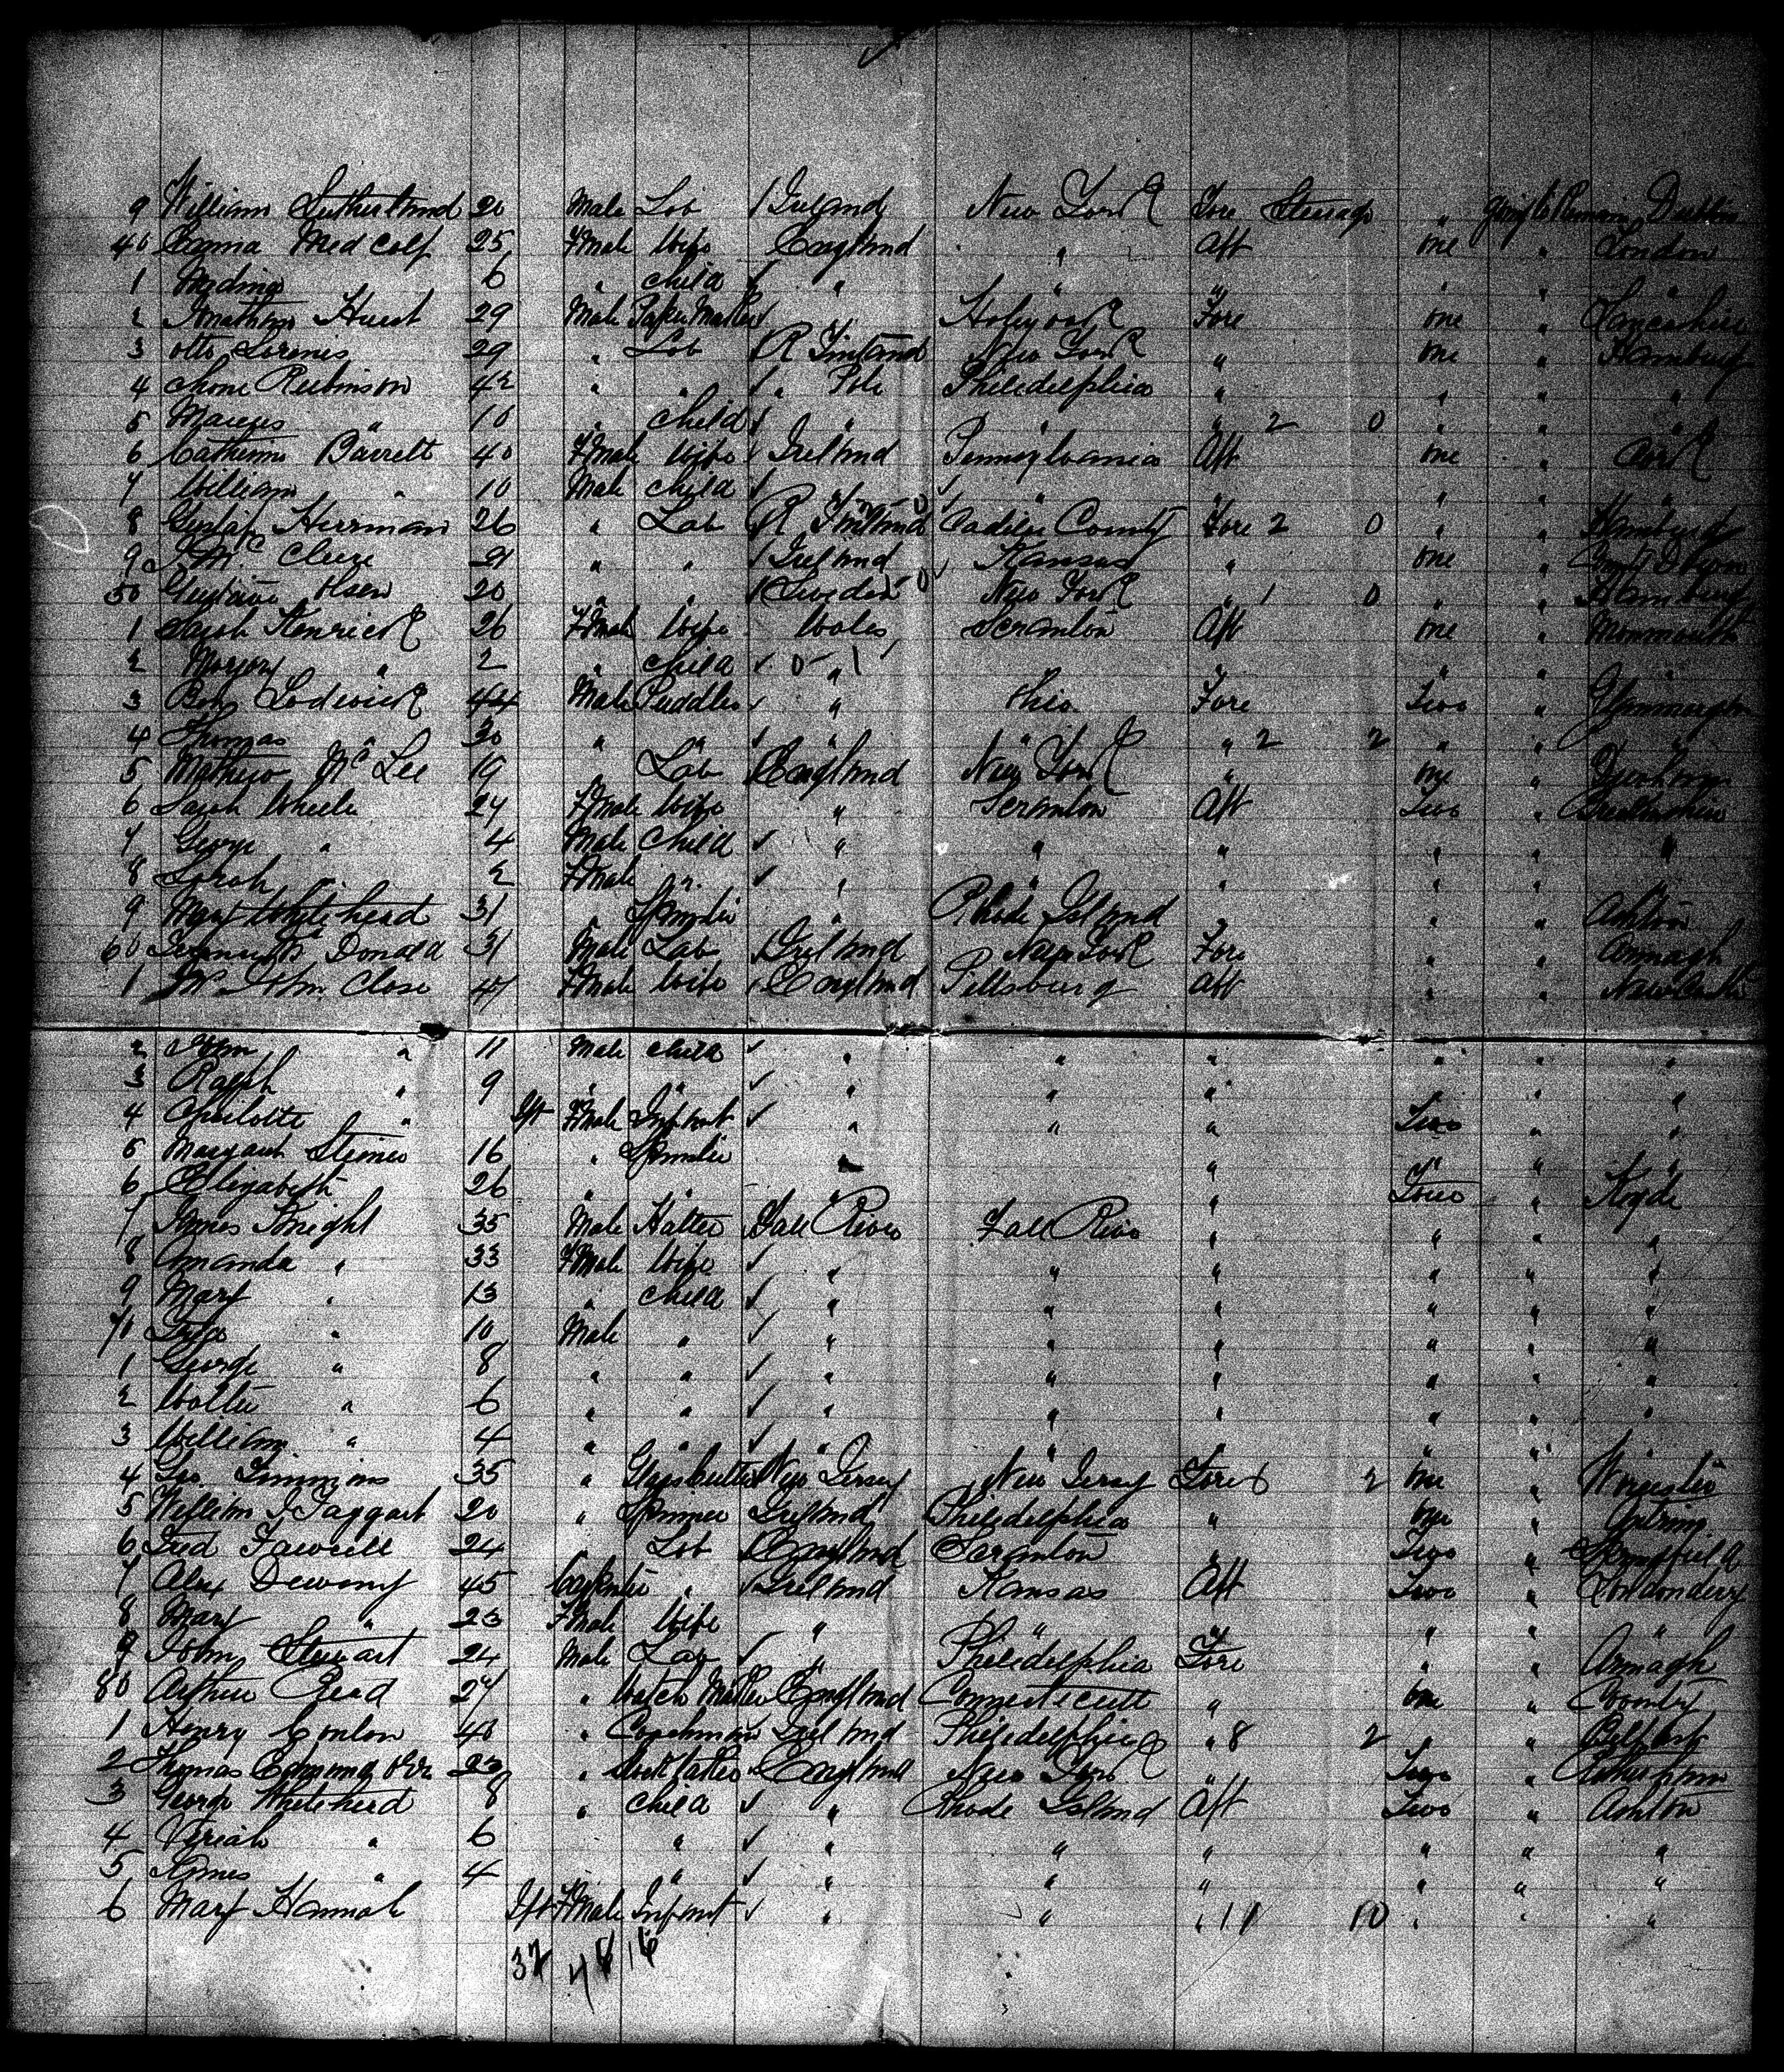 9 William Sutherland 20 Male Lab Ireland New York Fore Steerage " going to Remain Dublin
40 Emma Medcalf 25 Fmale Wife England " Aft one " London
1 6 " child ✓ " " " " " "
2 Jonathan Hurst 29 Male Paper Maker ✓ " Holyoak Fore one " Lancashire
3 Otto 29 " Lab R Finland New York " one " Hamburg
4 Rubinson 42 " " ✓ " Pole Philedelphia " " " "
5 " 10 " child ✓ " " " 2 0 " " "
6 Catherine Barrett 40 Fmale Wife Ireland Pennsylvania Aft one " Cork
7 William " 10 Male child ✓ " " " " " "
8 Gustaf Herrman 26 " Lab R Finland County Fore 2 0 " " Hamburg
9 Mc Clure 21 " " Ireland Kansas " one "
50 Gustave Olsen 20 " " Sweden New York " 1 0 " " Hamburg
1 Sarah Kenrick 26 Fmale Wife Wales Scranton Aft one " Monmouth
2 " 2 " child ✓ 0 - 1 " " " " "
3 Ben Lodwick 44 Male Puddler ✓ " Ohio Fore Two "
4 Thomas " 30 " " ✓ " " " 2 2 " " "
5 Mathew Mc Lee 19 " Lab England New York " one " Durham
6 Sarah Wheele 27 Fmale Wife " Scranton Aft Two "
7 George " 4 Male Child ✓ " " " " " "
8 Sarah " 2 Fmale " ✓ " " " " " "
9 Mary Whitehead 31 " Spinster " Rhode Island " " " Ashton
60 Donald 31 Male Lab Ireland New York Fore " " Armagh
1 Mrs John Close 47 Fmale Wife England Pittsburg Aft " " Newcastle
2 John " 11 Male child ✓ " " " " " "
3 Ralph " 9 " " ✓ " " " " "
4 Charlotte " Ift Fmale Infant ✓ " " " Two " "
5 Margaret 16 " Spinster " " " " "
6 Elizabeth 26 " " " " Two " Hyde
7 James Knight 35 Male Hatter Fall River Fall River " " " "
8 Amanda " 33 Fmale Wife ✓ " " " " " "
9 Mary " 13 " child ✓ " " " " " "
70 " 10 Male " ✓ " " " " " "
1 George " 8 " " ✓ " " " " " "
2 Walter " 6 " " ✓ " " " " " "
3 William " 4 " " ✓ " " " " " "
4 Geo. Timmins 35 " Glasscutter New Jersey New Jersey Fore 6 2 one " Worcester
5 William J Taggart 20 " Spinner Ireland Philedelphia " one " Antrim
6 Fred Fawcell 24 " Lab England Scranton " Two "
7 Alex Dewany 45 Carpenter " ✓ Ireland Kansas Aft Two " Londonderry
8 Mary " 23 Fmale Wife " " " " " "
9 John Stewart 24 Male Lab ✓ " Philedelphia Fore " " Armagh
80 Arthur Read 27 " Watch Maker England Connecticutt " one "
1 Henry Conlon 40 " Coachman Ireland Philedelphia " 8 2 " " Belfast
2 Thomas 23 " England New York " Two "
3 George Whitehead 8 " child ✓ " Rhode Island Aft Two " Ashton
4 Uriah " 6 " ✓ " " " " " "
5 James " 4 " ✓ " " " " " "
6 Mary Hannah Ift Fmale Infant ✓ " " " 11 10 " " "